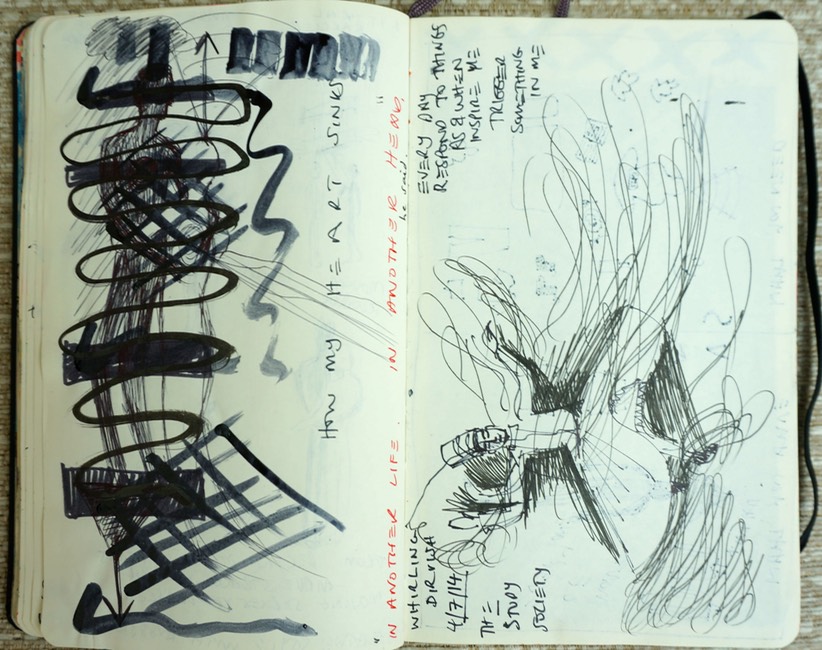 HOW MY HEART SINKS
"IN ANOTHER LIFE. IN ANOTHER HEAD"
he said.
EVERY DAY
RESPOND TO THINGS
AS & WHEN
INSPIRE ME
TRIGGER
SOMETHING
IN ME
WHIRLING
DIRVISH
4/7/14
THE
STUDY
SOCIETY